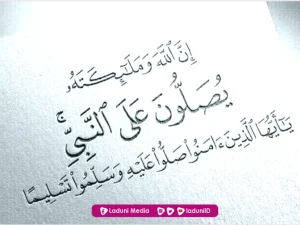 إِنَّ ٱللَّهَ وَمَلَـٰٓئِكَتَهُۥ
يُصَلُّونَ عَلَى ٱلنَّبِىِّ ۚ
يَـٰٓأَيُّهَا ٱلَّذِينَ ءَامَنُوا۟ صَلُّوا۟ عَلَيْهِ وَسَلِّمُوا۟ تَسْلِيمًا
Laduni Media laduniID